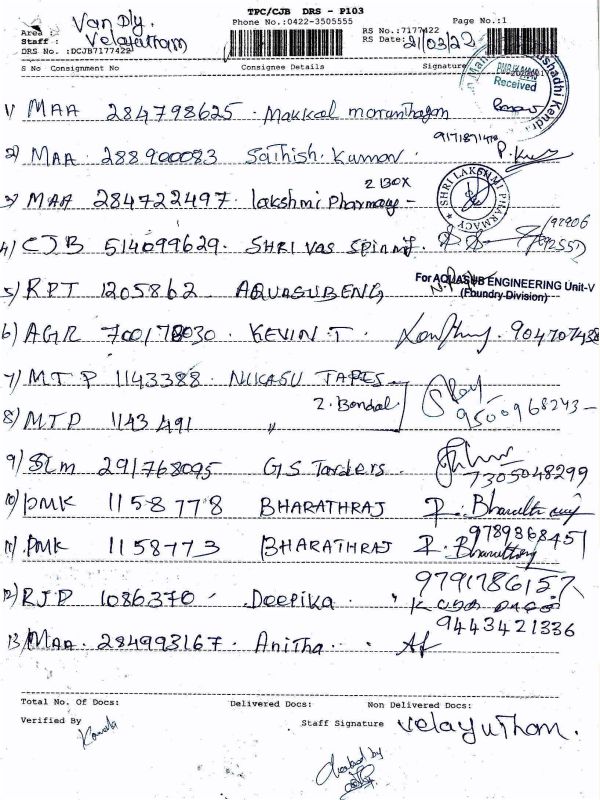 TPC/CJB DRS - P103
Van Dly.
Phone No.:0422-3505555
Page No.:1
Area :
Staff : Velayutham
RS No.:7177422
RS Date: 21/03/22
DRS No. :DCJB7177422
S No Consignment No Consignee Details Signature
Received
1) MAA 284798625 - Makkal marunthagam
9171871478
2) MAA 288900083 Sathish Kumar. P.
3) MAA 284722497. lakshmi Pharmacy - 2 BOX
SHRI LAKSHMI PHARMACY
4) CJB 514099629. SHRI Vas Spinning. /92906
/92557
5) RPT 1205862 AQUASUBENG
For AQUASUB ENGINEERING Unit-V
(Foundry Division)
6) AGR 700178030 . KEVIN T. 904707438
7) MTP 1143388 NUKASU TAPES
2. Bondal
8) MTP 1143491 "
9500968243-
9) SLM 291768095 G S Tarders.
7305048299
10) PMK 1158778 BHARATHRAJ
9789868451
11) PMK 1158773 BHARATHRAJ
9791786157
12) RJP 1086370 . Deepika.
9443421336
13) MAA. 284993167. Anitha.
Total No. Of Docs: Delivered Docs: Non Delivered Docs:
Verified By Staff Signature Velayutham.
Checked by